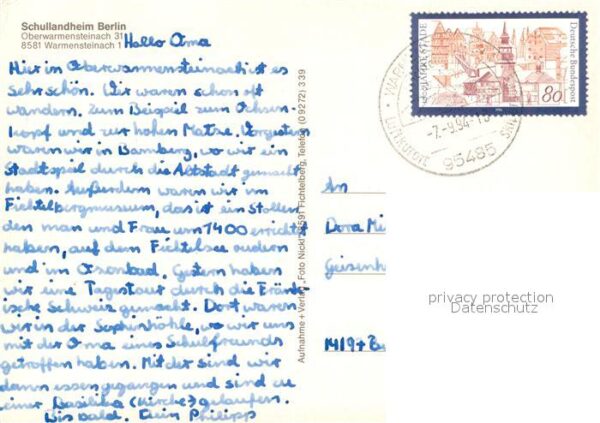 Schullandheim Berlin
Oberwarmensteinach 31
8581 Warmensteinach 1
Hallo Oma
Hier in Oberwarmensteinach ist es
sehr schön. Wir waren schon oft
wandern. Zum Beispiel zum Ochsen-
kopf und zur hohen Matze. Vorgestern
waren wir in Bamberg, wo wir ein
Stadtspiel durch die Altstadt gemacht
haben. Außerdem waren wir im
Fichtelbergmuseum, das ist ein Stollen
den man und Frau um 1400 errichtet
haben, auf dem Fichtelsee rudern
und im Ozonbad. Gestern haben
wir eine Tagestour durch die Fränk-
ische Schweiz gemacht. Dort waren
wir in der Sophienhöhle, wo wir uns
mit der Oma eines Schulfreunds
getroffen haben. Mit der sind wir
dann essen gegangen und sind zu
einer Basilika (Kirche) gelaufen.
Bis bald. Dein Philipp
Aufnahme + Verlag „Foto Nickl" 8591 Fichtelberg, Telefon (09272) 339
Deutsche Bundespost
80
Luftkurort
-7.-9.94-
95485
An
Dora Mi
Geisenh
1419+ Be
privacy protection
Datenschutz